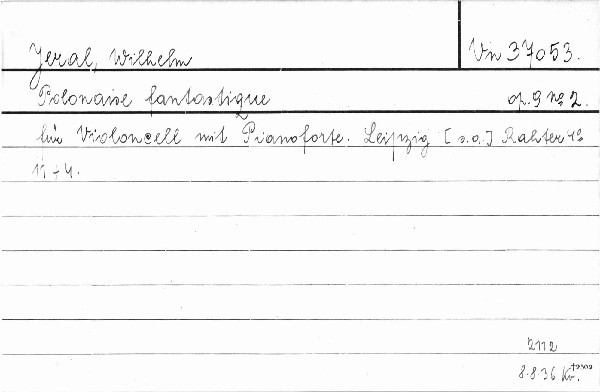 Jeral, Wilhelm Vn 37053.
Polonaise fantastique op. 9 № 2.
für Violoncell mit Pianoforte. Leipzig [s.a.] Rahter 4°
11 + 4.
2112
8.8.36 Kr.